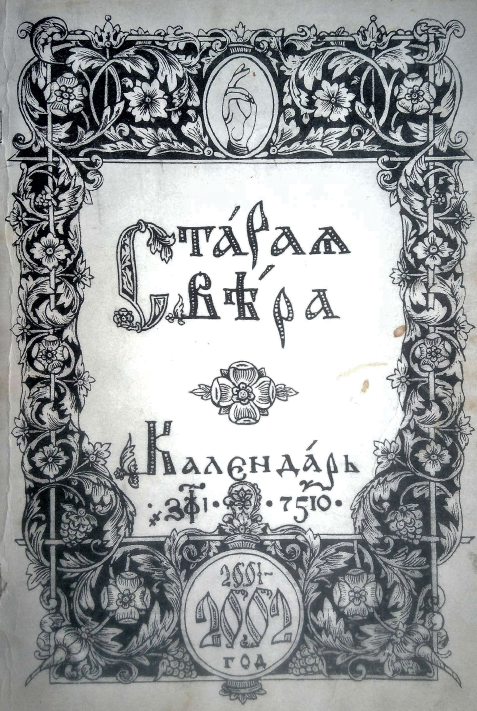 Ста́рая
вѣ́ра
Календа́рь
҂зф҃і · 7510 ·
2001-
2002
год